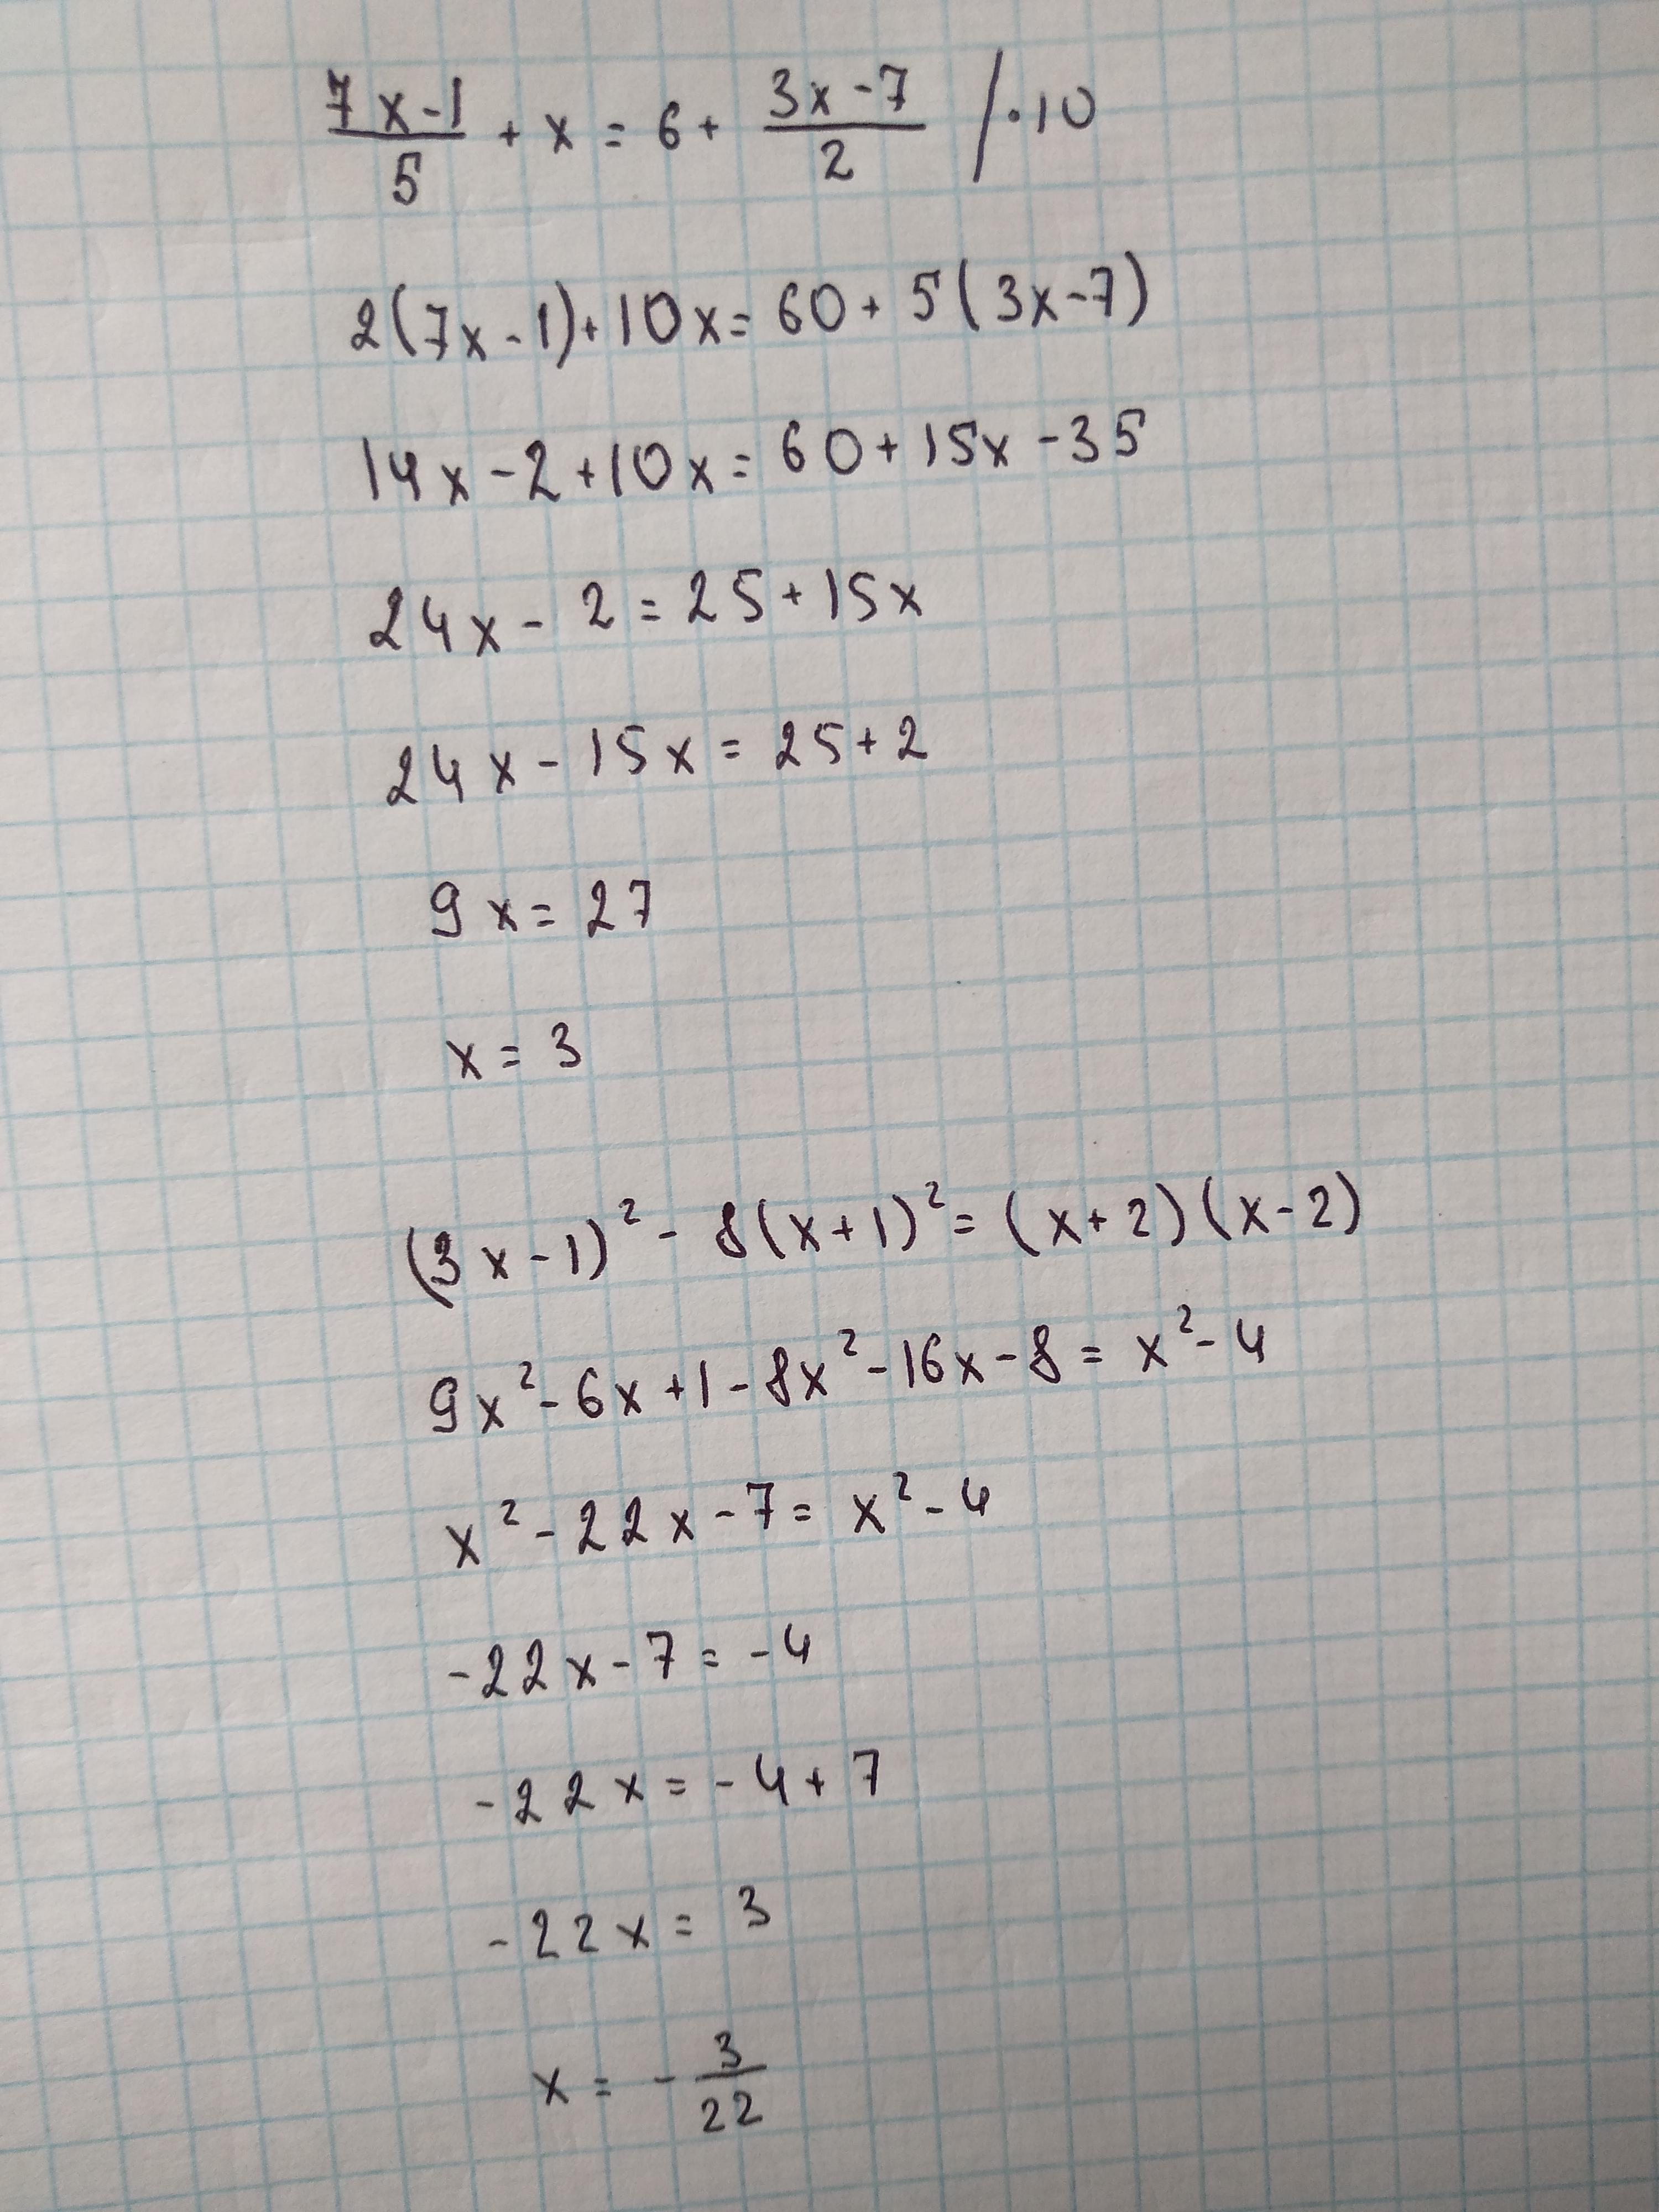 (7x-1)/5 + x = 6 + (3x-7)/2 /·10
2(7x-1)+10x=60+5(3x-7)
14x-2+10x=60+15x-35
24x-2=25+15x
24x-15x=25+2
9x=27
x=3
(3x-1)²-8(x+1)²=(x+2)(x-2)
9x²-6x+1-8x²-16x-8=x²-4
x²-22x-7=x²-4
-22x-7=-4
-22x=-4+7
-22x=3
x=-3/22